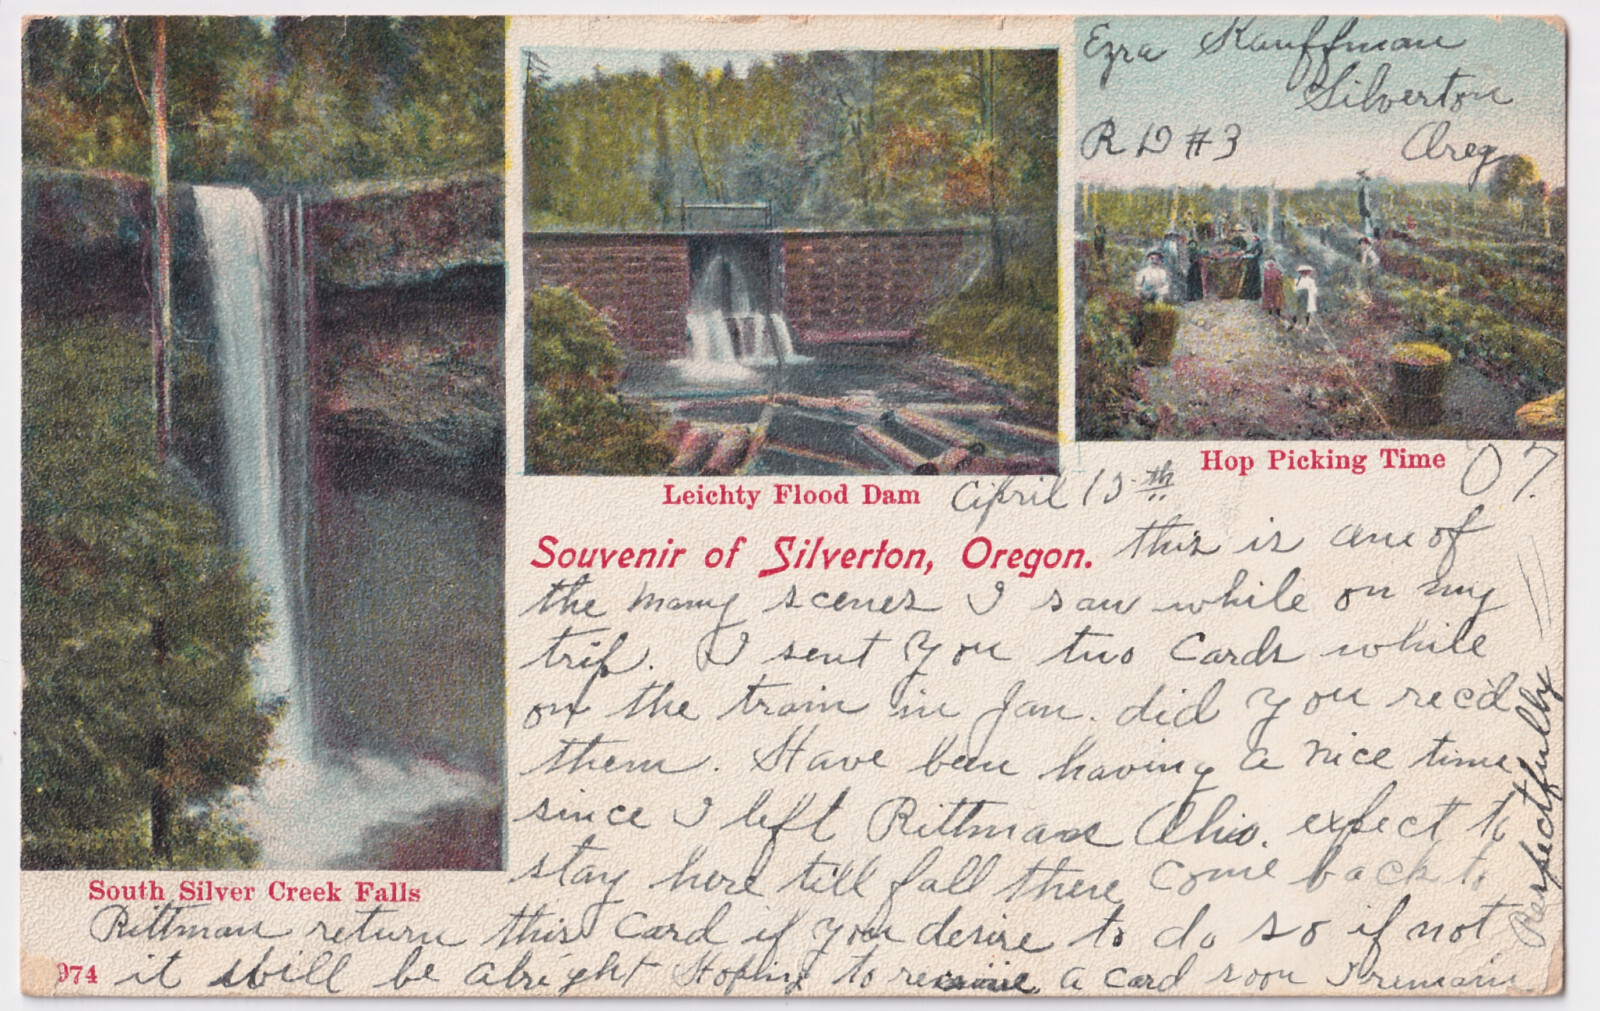 Ezra Kauffman
Silverton
R D #3 Oreg
Hop Picking Time
07.
Leichty Flood Dam
April 13th
Souvenir of Silverton, Oregon.
this is one of
the many scenes I saw while on my
trip. I sent you two Cards while
on the train in Jan. did you rec'd
them. Have been having a nice time
since I left Rittman Ohio. expect to
stay here till fall then come back to
South Silver Creek Falls
Rittman return this Card if you desire to do so if not
974 it will be alright Hoping to receive a card soon I remain
Respectfully